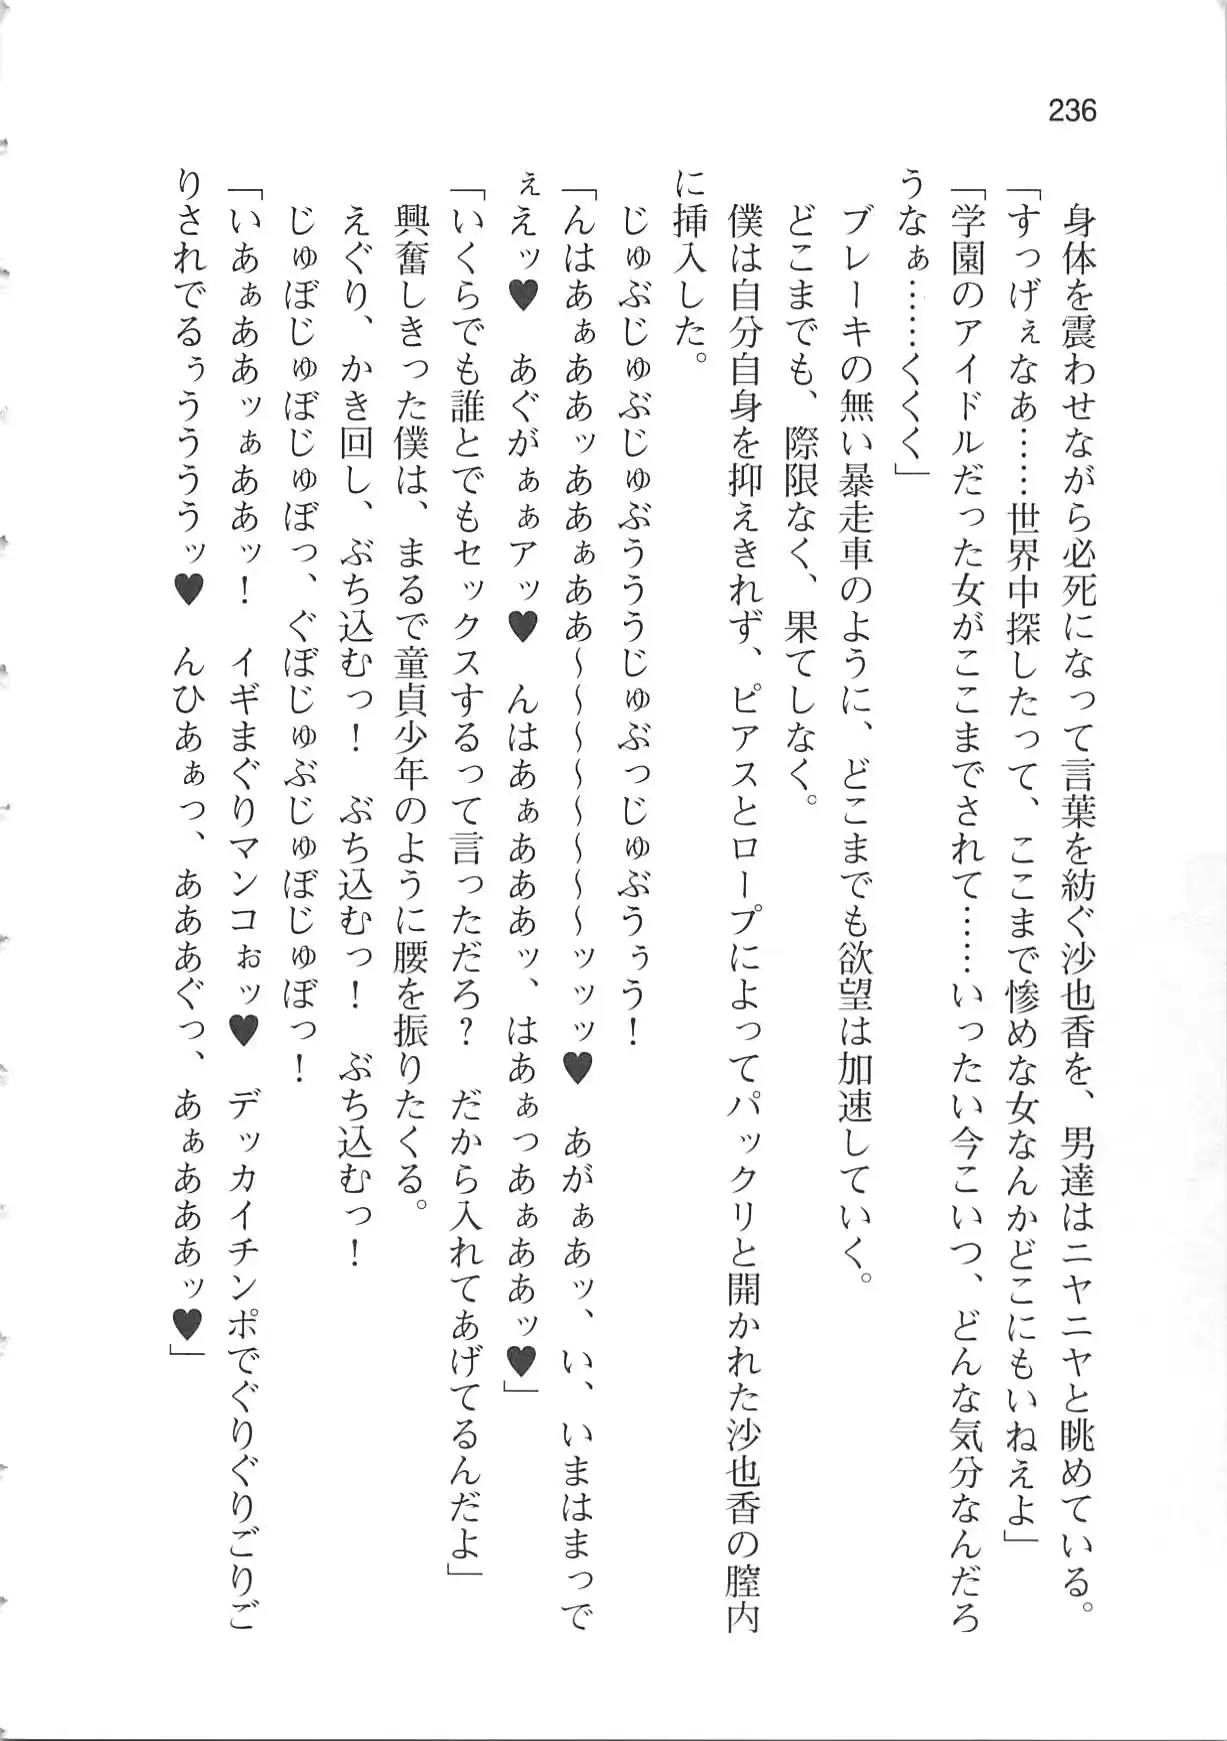 236
身体を震わせながら必死になって言葉を紡ぐ沙也香を、男達はニヤニヤと眺めている。
「すっげぇなあ……世界中探したって、ここまで惨めな女なんかどこにもいねえよ」
「学園のアイドルだった女がここまでされて……いったい今こいつ、どんな気分なんだろ
うなぁ……くくく」
ブレーキの無い暴走車のように、どこまでも欲望は加速していく。
どこまでも、際限なく、果てしなく。
僕は自分自身を抑えきれず、ピアスとロープによってパックリと開かれた沙也香の膣内
に挿入した。
じゅぶじゅぶじゅぶうううじゅぶっじゅぶうぅう！
「んはあぁああッああぁああ～～～～～～～～ッッッ♥　あがぁあッ、い、いまはまっで
ぇえッ♥　あぐがぁぁアッ♥　んはあぁあああッ、はあぁっあぁああッ♥」
「いくらでも誰とでもセックスするって言っただろ？　だから入れてあげてるんだよ」
興奮しきった僕は、まるで童貞少年のように腰を振りたくる。
えぐり、かき回し、ぶち込むっ！　ぶち込むっ！　ぶち込むっ！
じゅぼじゅぼじゅぼっ、ぐぼじゅぶじゅぼじゅぼっ！
「いあぁああッぁああッ！　イギまぐりマンコぉッ♥　デッカイチンポでぐりぐりごりご
りされでるぅううううッ♥　んひあぁっ、あああぐっ、あぁあああッ♥」